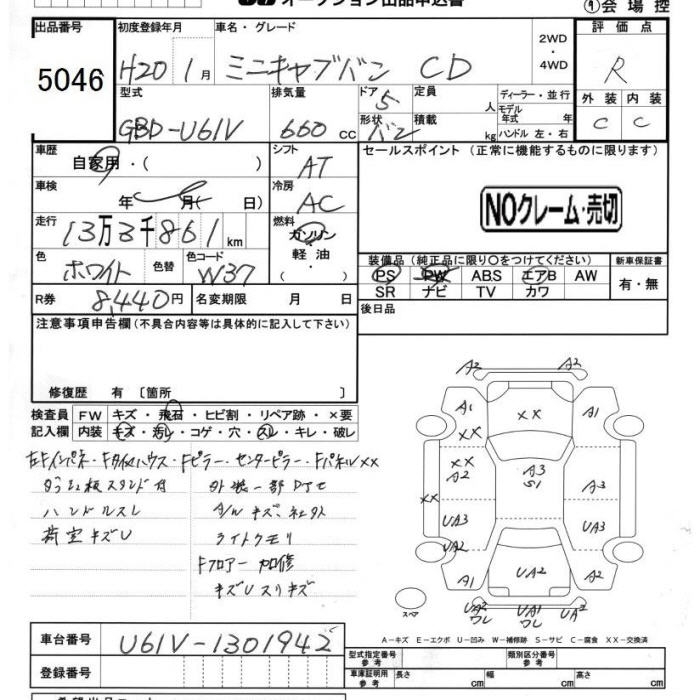 オークション出品申込書
① 会 場 控
出品番号
初度登録年月
車名・グレード
評 価 点
5046
H20 1月
ミニキャブバン CD
2WD
・
4WD
R
型式
排気量
ドア 5
定員 人
ディーラー・並行
外 装
内 装
GBD-U61V
660 cc
形状 バン
積載 kg
モデル年式 年
ハンドル 左・右
C
C
車歴
自家用・( )
シフト
AT
セールスポイント (正常に機能するものに限ります)
車検
年 月( 日)
冷房
AC
NOクレーム・売切
走行
13万3千861km
燃料
ガソリン
・
軽 油
装備品 (純正品に限り○をつけてください)
新車保証書
色
ホワイト
色替
色コード
W37
PS PW ABS エアB AW
SR ナビ TV カワ
有・無
R券
8,440円
名変期限 月 日
後日品
注意事項申告欄 (不具合内容等は具体的に記入して下さい)
修復歴 有 〔箇所 〕
検査員
記入欄
FW キズ・飛石・ヒビ割・リペア跡・×要
内装 キズ・汚れ・コゲ・穴・スレ・キレ・破レ
左Fインパネ・Fタイヤハウス・Fピラー・センターピラー・Fパネル××
ハンドルスレ
荷室キズU
外装一部
ライトクモリ
Fフロアー 加修
キズUスリキズ
A2
A2
A1
××
A1
××
××
××
A2
A3
S1
A3
UA3
UA3
UA2
A1
UA2
A2
UA2
ワレ
UA1
ワレ
UA3
スペア
A－キズ E－エクボ U－凹み W－補修跡 S－サビ C－腐食 XX－交換済
車台番号
U61V-1301942
型式指定番号
参 考
類別区分番号
参 考
登録番号
車庫証明用
参 考
長さ cm
幅 cm
高さ cm